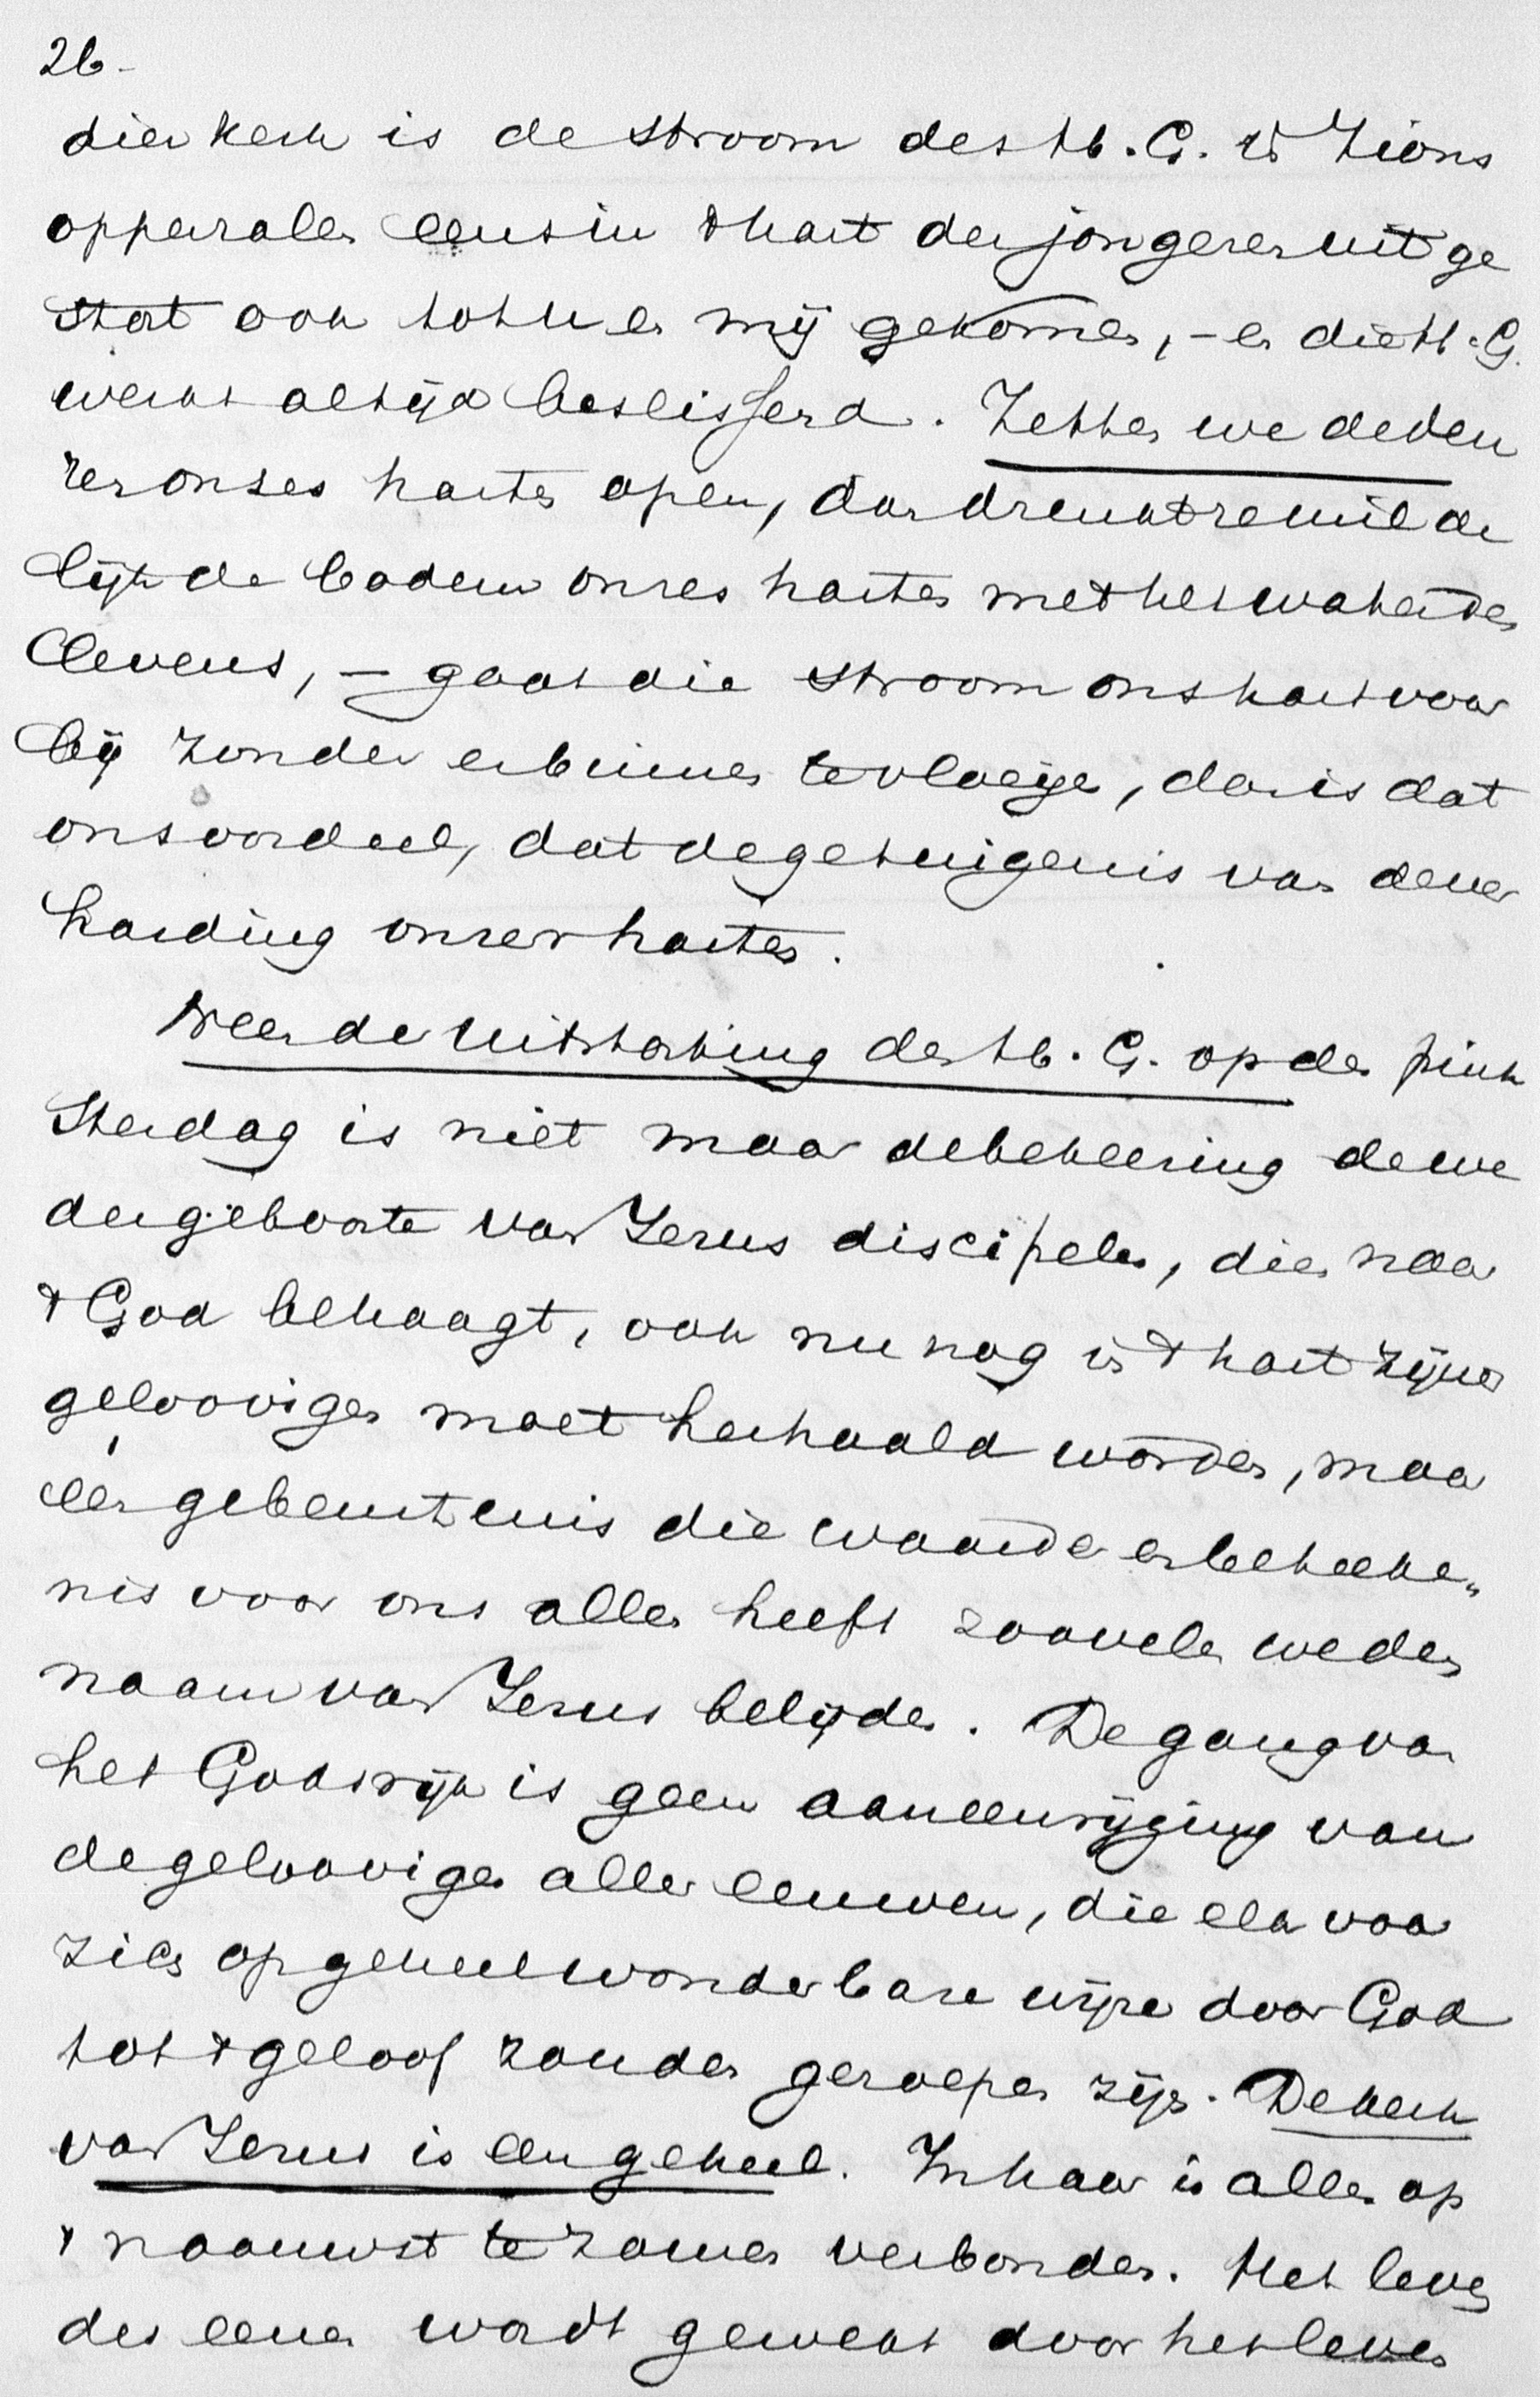 26-
dier kerk is de stroom des H. G. uit Zions
opperzalen eens in 't hart der jongeren uitge
stort ook tot u en mij gekomen, – en die H. G.
werkt altijd beslissend. Zetten we de deu
ren onses harten open, dan drenkt ze milde
lijk de bodem onses harten met het water des
levens, – gaat die stroom ons hart voor
bij zonder er binnen te vloeijen, dan is dat
ons oordeel, dat de getuigenis van de ver
harding onser harten.
Neen de uitstorting des H. G. op den pink
sterdag is niet maar de bekeering de we
dergeboorte van Jezus discipelen, die naar
't God behaagt, ook nu nog in 't hart zijner
geloovigen moet herhaald worden, maar
één gebeurtenis die waarde en beteeke„
nis voor ons allen heeft zoovelen we den
naam van Jezus belijden. De gang van
het Godsrijk is geen aaneenrijging van
de geloovigen aller eeuwen, die elk voor
zich op geheel wonderbare wijze door God
tot 't geloof zouden geroepen zijn. De kerk
van Jezus is een geheel. In haar is alles op
't naauwst te zamen verbonden. Het leven
des eenen wordt gewekt door het leven